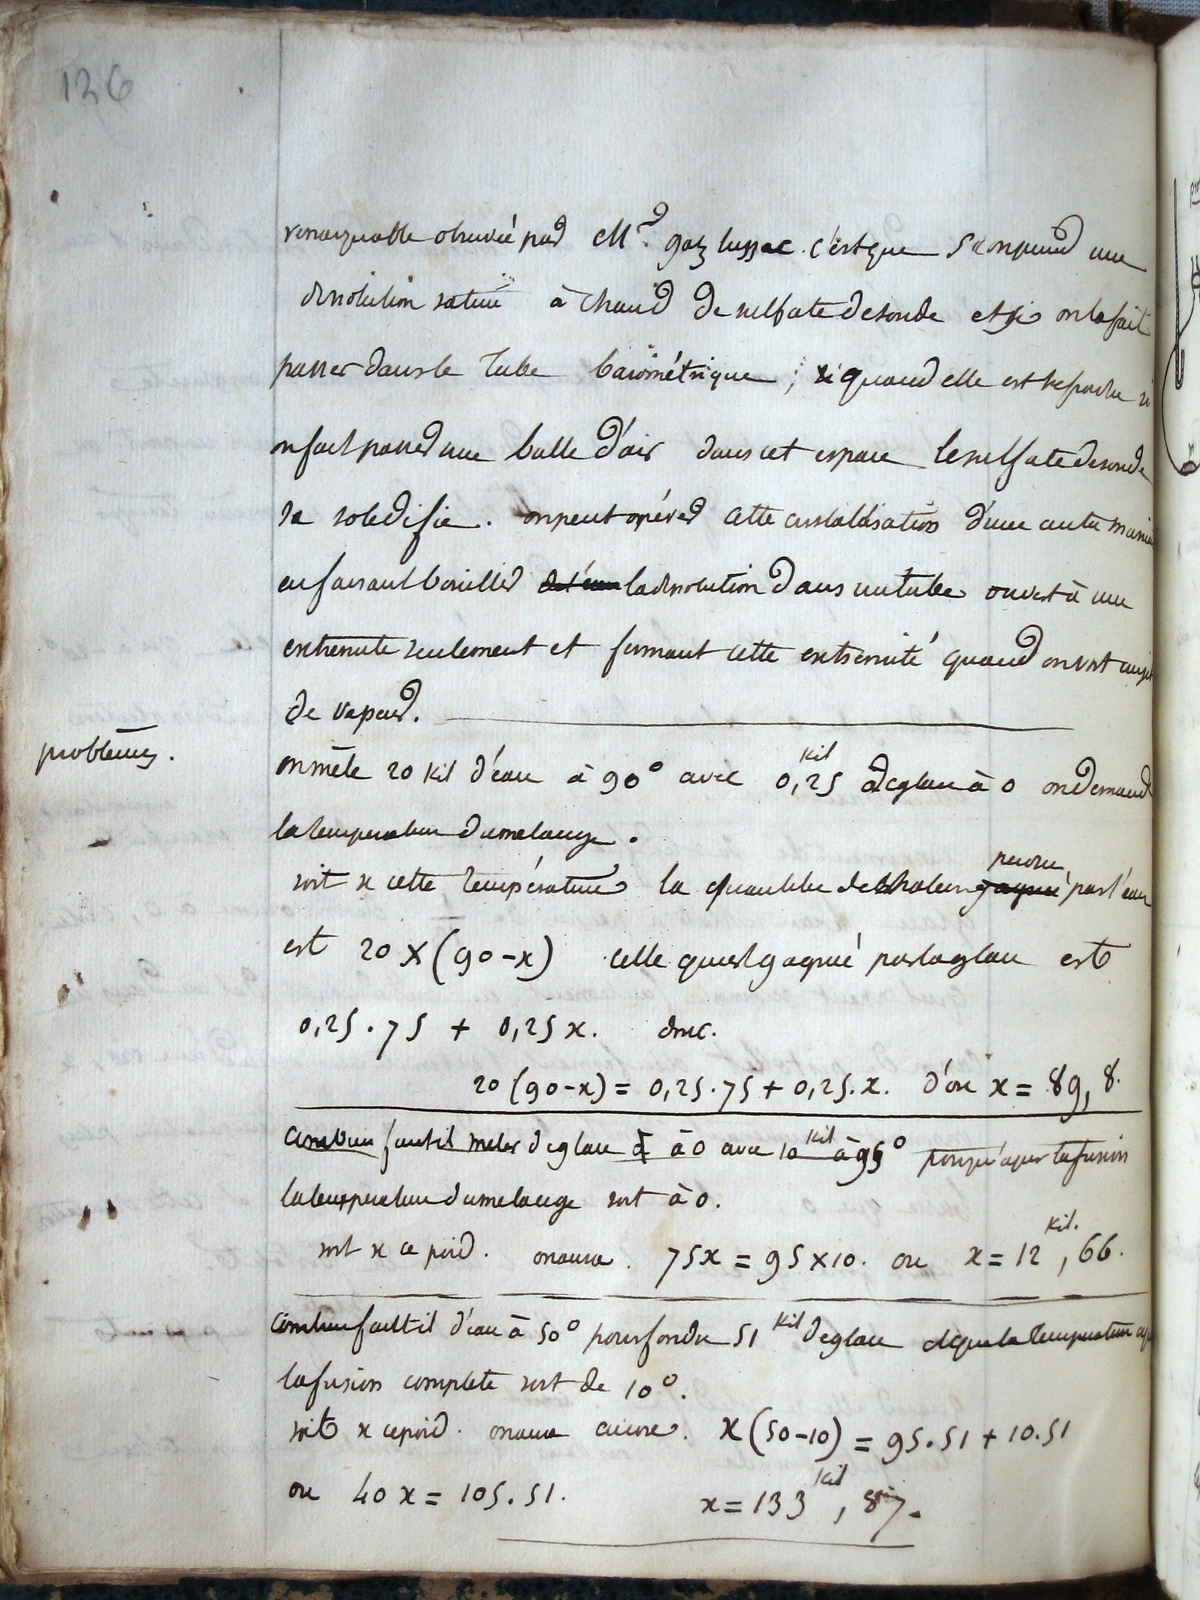 126
remarquable observée par Mr. gay lussac. c'est que si on prend une
dissolution saturée à chaud de sulfate de soude et si on la fait
passer dans le tube barométrique, si quand elle est refroidie si
on fait passer une bulle d'air dans cet espace le sulfate de soude
se soledifie. on peut opérer cette cristalisation d'une autre manie
en faisant bouillir de l'eau la dissolution dans un tube ouvert à une
extremite seulement et fermant cette extremité quand on voit
de vapeur.
problèmes.
on mêle 20 kil d'eau à 90° avec 0,25 kil de glace à 0 on demande
la temperature du melange.
soit x cette température la quantité de chaleur gagnée perdue par l'eau
est 20 × (90 - x) celle qui est gagnée par la glace est
0,25 . 75 + 0,25 x. donc.
20 (90 - x) = 0,25 . 75 + 0,25 . x. d'ou x = 89, 8.
Combien faut il meler de glace à 0 avec 10 kil à 95° pour qu'apres la fusion
la temperature du melange soit à 0.
soit x ce poid. on aura. 75x = 95 × 10. ou x = 12 kil. , 66.
Combien faut il d'eau à 50° pour fondre 51 kil de glace et que la temperature
la fusion complete soit de 10°.
soit x ce poid. on aura encore. x (50 - 10) = 95 . 51 + 10 . 51
ou 40 x = 105 . 51. x = 133 kil , 87.